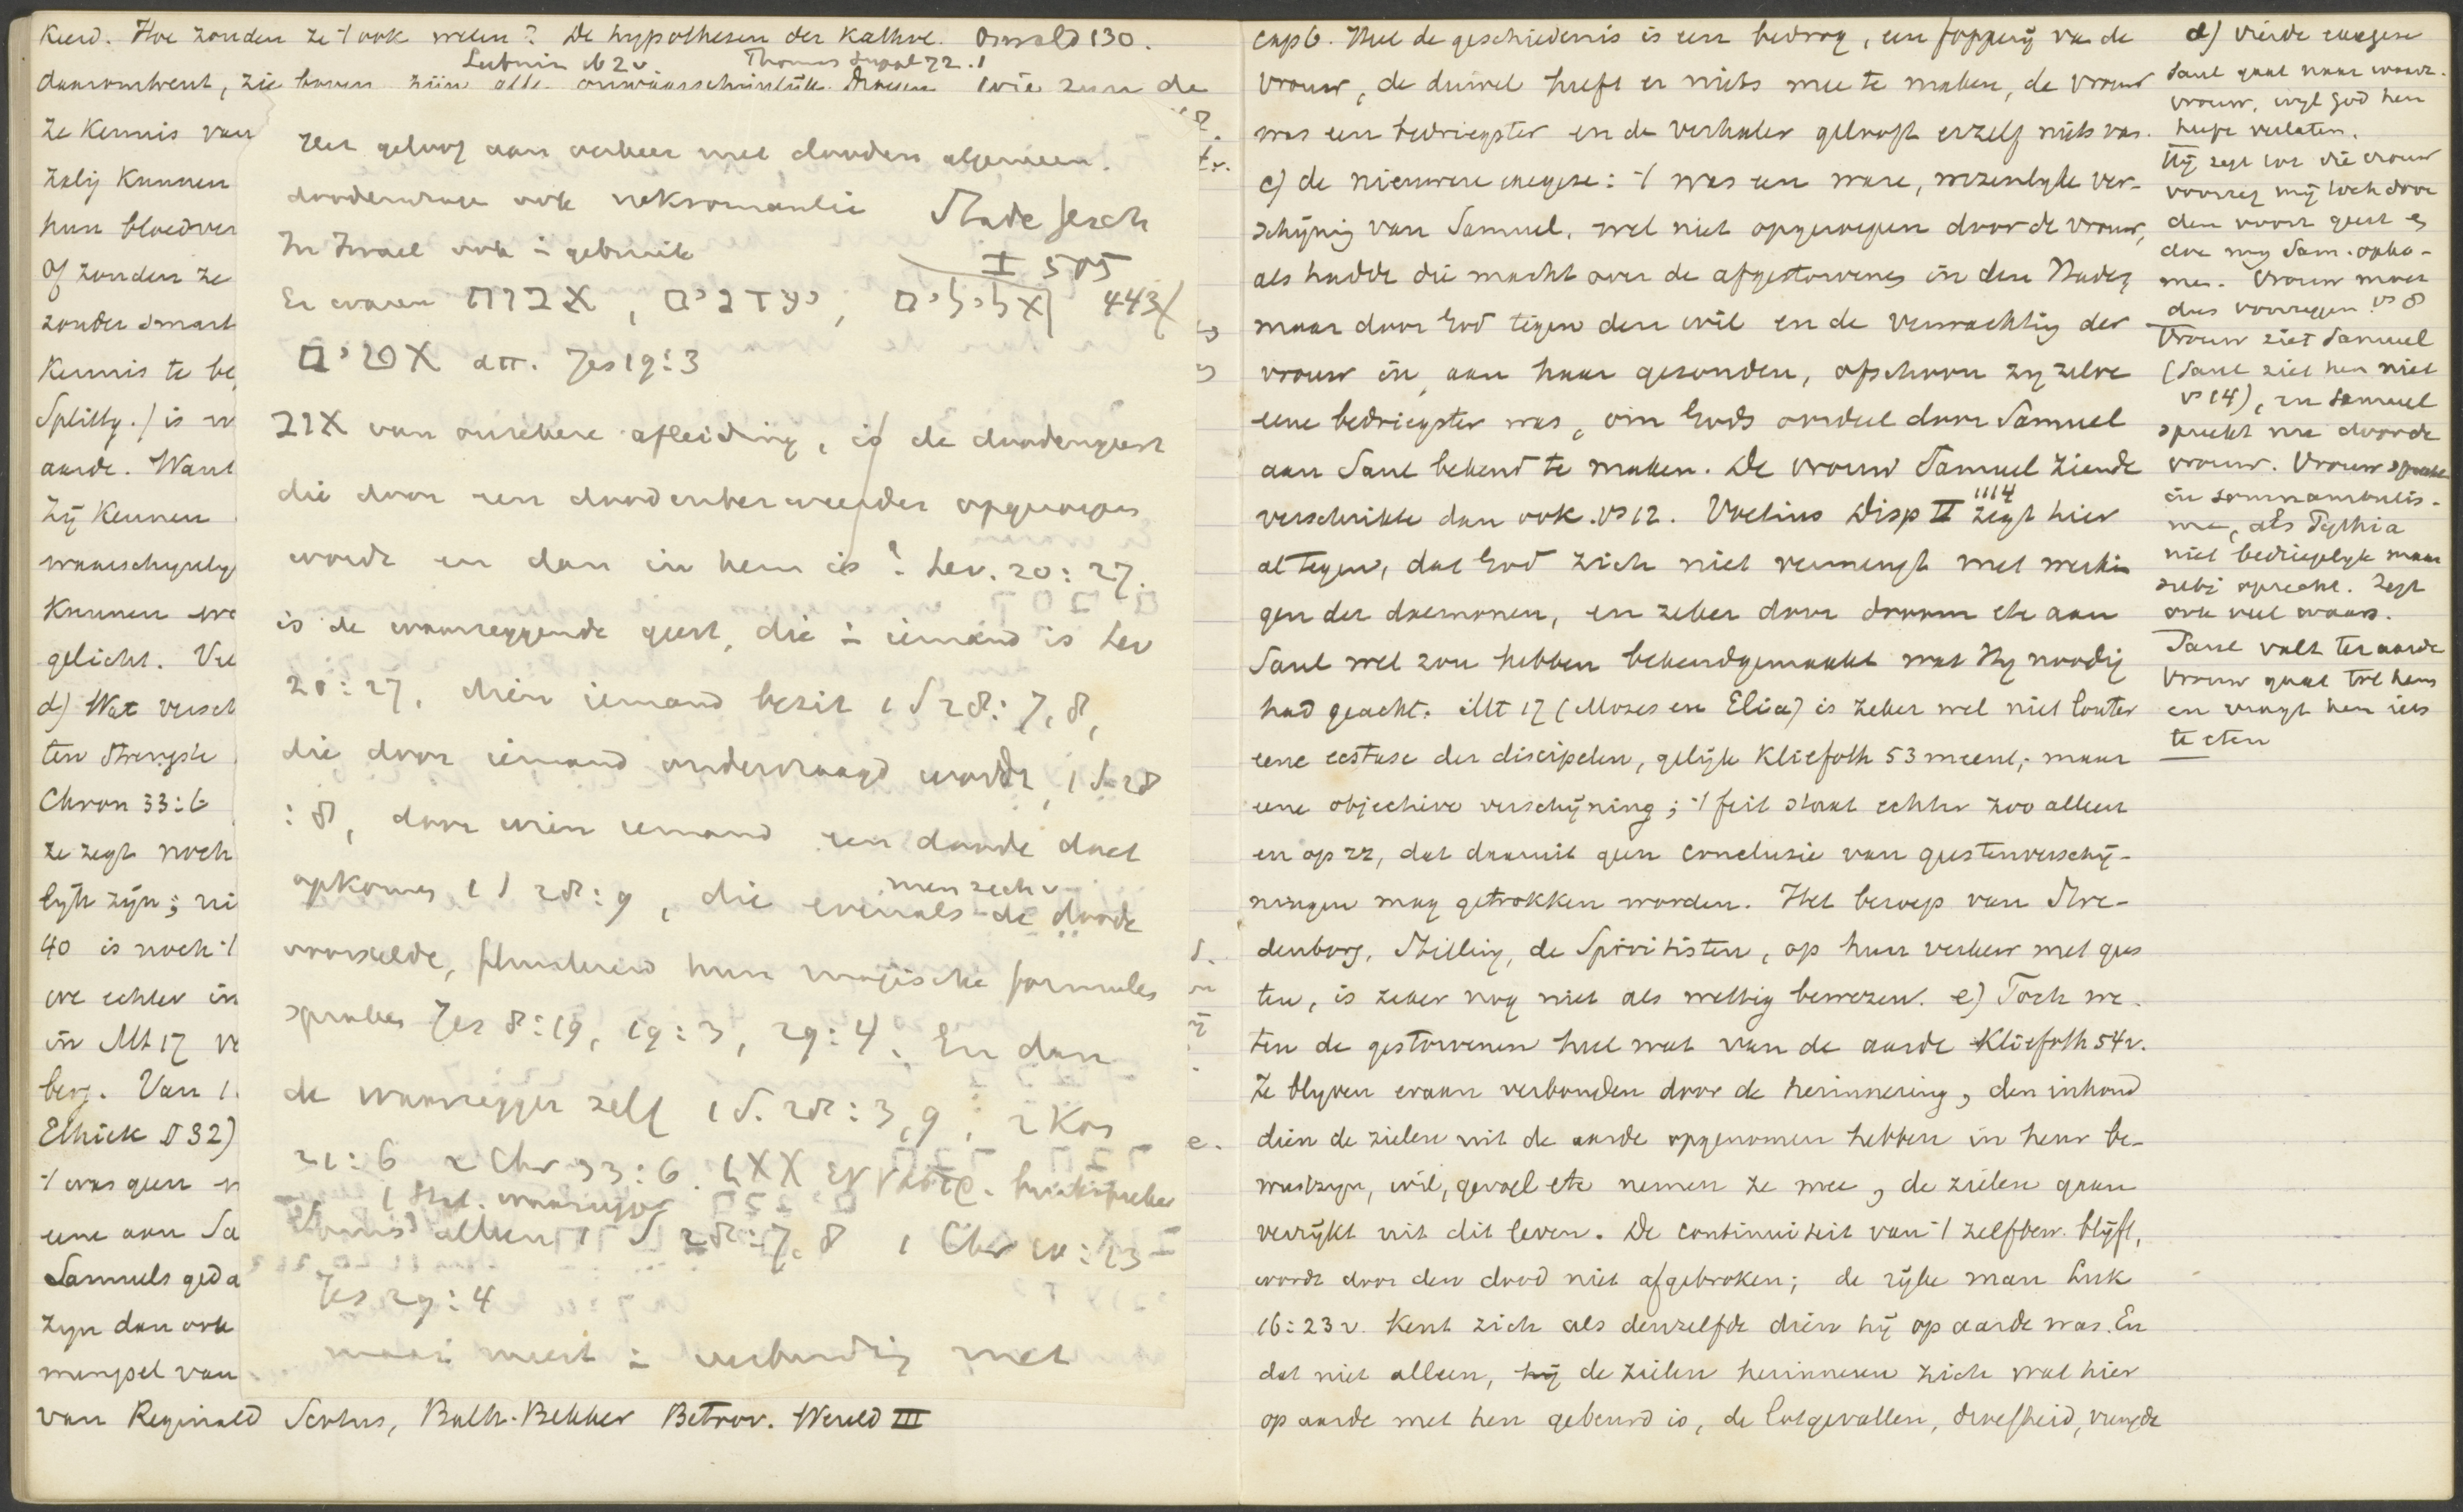 kend. Hoe zouden ze 't ook weten? De hypothesen der Kathol. Oswald 130.
Leibniz Thomas suppl 72.1
daaromtrent, zie boven zijn alle onwaarschijnlijk. Wie zijn de
ze Kennis van
zalij kunnen
hun bloedver
Of zouden ze
zonder smart
Kennis te be
Splittg.) is
aarde. Want
Zij kennen
waarschynlyk
kunnen we
gelicht. Ve
d) Wat versch
ten strengste
Chron 33:6
ze zegt noch
lyk zyn; ni
40 is noch 't
we echter in
in Mt 17 ve
berg. Van 1
Ethick II 32)
't was geen
eene aan Sa
Samuels geda
zyn dan ook
mengsel van
van Reginald Scotus, Balth. Bekker Betoov. Wereld III
Het geloof aan verkeer met dooden algemeen.
doodenvrage ook nekromantie Stade Gesch
In Israel ook i gebruik I 505
Er waren אבות, ידענים, אלילים 443
אטים ἁπ. Jes 19:3
אוב van onzekere afleiding, is de doodengeest
die door een doodenbezweerder opgeroepen
wordt en dan in hem is? Lev. 20:27.
is de waarzeggende geest, die i iemand is Lev
20:27, dien iemand bezit 1 S 28:7,8,
die door iemand ondervraagd wordt, 1 S 28
:8, door wien iemand een doode doet
opkomen 1 S 28:9, die evenals de doode
men zich
voorstelde, fluisterend hun magische formules
spraken Jes 8:19, 19:3, 29:4. En dan
de waarzegger zelf 1 S. 28:3,9, 2 Kon
21:6 2 Chr 33:6. LXX buikspreker
alleen 1 S 28:7.8 1 Chr 10:13
Jes 29:4
maar meest i verbinding met
cap 6. Heel de geschiedenis is een bedrog, een fopperij van de
vrouw, de duivel heeft er niets mee te maken, de vrouw
was een bedriegster en de verhaler gelooft erzelf niets van.
c) de nieuwere exegese: 't was een ware, wezenlyke ver-
schijnig van Samuel, wel niet opgeroepen door de vrouw,
als hadde die macht over de afgestorvenen in den Hades,
maar door God tegen den wil en de verwachtig der
vrouw in, aan haar gezonden, ofschoon zy zelve
eene bedriegster was, om Gods oordeel door Samuel
aan Saul bekend te maken. De vrouw Samuel ziende
verschrikte dan ook. vs 12. Voetius Disp II 1114 zegt hier
al tegen, dat God zich niet vermengt met werkin
gen der daemonen, en zeker door droom etc aan
Saul wel zou hebben bekendgemaakt wat Hy noodig
had geacht. Mt 17 (Mozes en Elia) is zeker wel niet louter
eene ecstase der discipelen, gelijk Kliefoth 53 meent, maar
eene objectieve verschijning; 't feit staat echter zoo alleen
en op zz, dat daaruit geen conclusie van geestenverschij-
ningen mag getrokken worden. Het beroep van Swe-
denborg, Stilling, de Spiritisten, op hun verkeer met gees
ten, is zeker nog niet als wettig bewezen. e) Toch we-
ten de gestorvenen heel wat van de aarde Kliefoth 54v.
Ze blyven eraan verbonden door de herinnering, den inhoud
dien de zielen uit de aarde opgenomen hebben in heur be-
wustzyn, wil, gevoel etc nemen ze mee, de zielen gaan
verrijkt uit dit leven. De continuiteit van 't zelfbew. blijft,
wordt door den dood niet afgebroken; de rijke man Luk
16:23v. kent zich als denzelfde dien hij op aarde was. En
dat niet alleen, hij de zielen herinneren zich wat hier
op aarde met hen gebeurd is, de lotgevallen, droefheid, vreugde
d) vierde exegese
Saul gaat naar waarz.
vrouw, wyl God hem
heeft verlaten.
Hij zegt tot die vrouw
voorzeg mij toch door
den voorz geest en
doe my Sam. opko-
men. Vrouw moet
dus voorzeggen. vs 8
Vrouw ziet Samuel
(Saul ziet hem niet
vs 14), en Samuel
spreekt nu door de
vrouw. Vrouw sprak
in somnambulis-
me, als Pythia
niet bedriegelyk maar
subj oprecht. Zegt
ook veel waars.
Saul valt ter aarde
Vrouw gaat tot hem
en vraagt hem iets
te eten